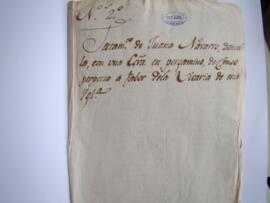 N.º 2.º
Testam.to de Juana Navarro, donce
lla, con una Cttª en pergamino, de Censo
perpetuo a fabor dela Vicaria de esta
Ygl.ª